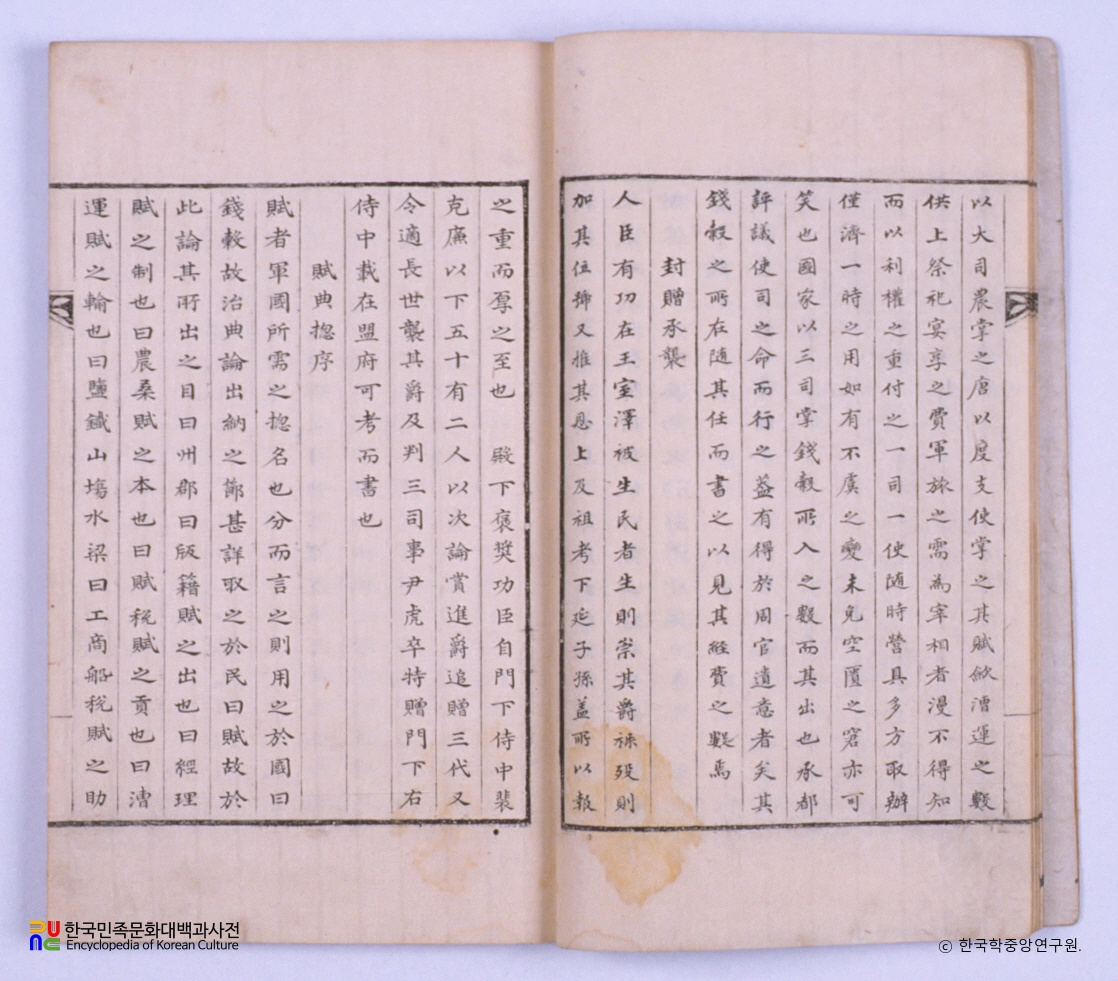 以大司農掌之唐以度支使掌之其賦斂漕運之數
供上祭祀宴享之費軍旅之需爲宰相者漫不得知
而以利權之重付之一司一使隨時營具多方取辦
僅濟一時之用如有不虞之變未免空匱之窘亦可
笑也國家以三司掌錢穀所入之數而其出也承都
評議使司之命而行之葢有得於周官遺意者矣其
錢穀之所在隨其任而書之以見其經費之數焉
封贈承襲
人臣有功在王室澤被生民者生則崇其爵祿歿則
加其位號又推其恩上及祖考下延子孫葢所以報
之重而厚之至也 殿下褒奬功臣自門下侍中裴
克廉以下五十有二人以次論賞進爵追贈三代又
令適長世襲其爵及判三司事尹虎卒特贈門下右
侍中載在盟府可考而書也
賦典摠序
賦者軍國所需之摠名也分而言之則用之於國曰
錢穀故治典論出納之節甚詳取之於民曰賦故於
此論其所出之目曰州郡曰版籍賦之出也曰經理
賦之制也曰農桑賦之本也曰賦稅賦之貢也曰漕
運賦之輸也曰鹽鐵山塲水梁曰工商船稅賦之助
한국민족문화대백과사전
Encyclopedia of Korean Culture
ⓒ 한국학중앙연구원.